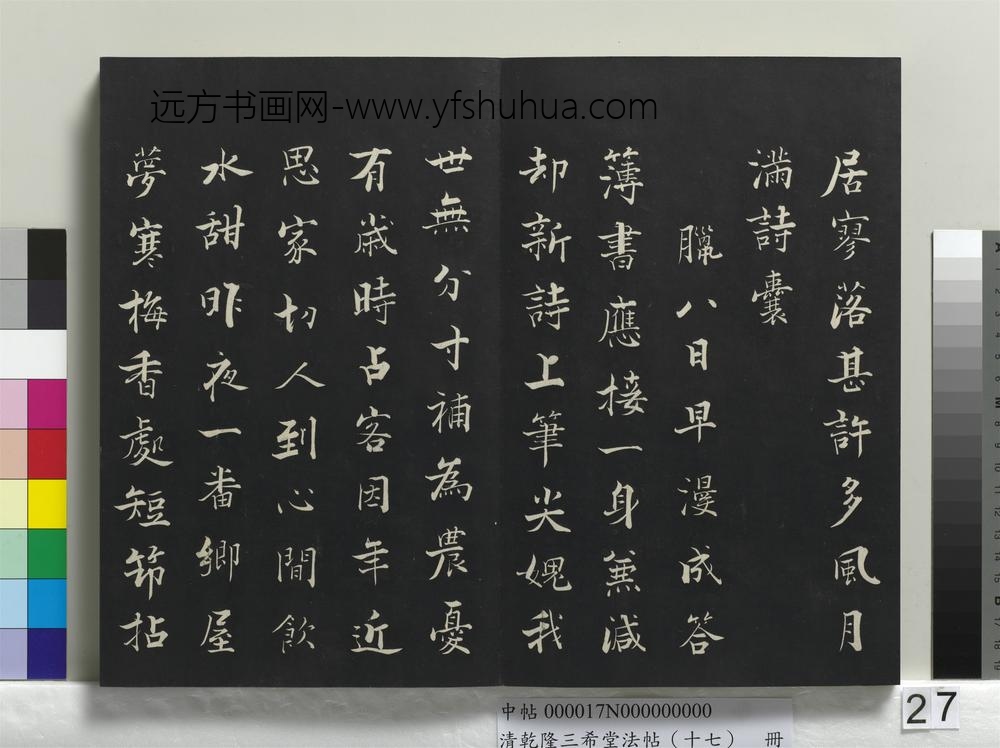 远方书画网-www.yfshuhua.com
居寥落甚許多風月
滿詩囊
臘八日早漫成答
簿書應接一身無減
却新詩上筆尖媿我
世無分寸補為農憂
有歲時占客因年近
思家切人到心閒飲
水甜昨夜一番鄉屋
夢寒梅香處短筇拈
中帖 000017N000000000
清乾隆三希堂法帖（十七） 冊
27